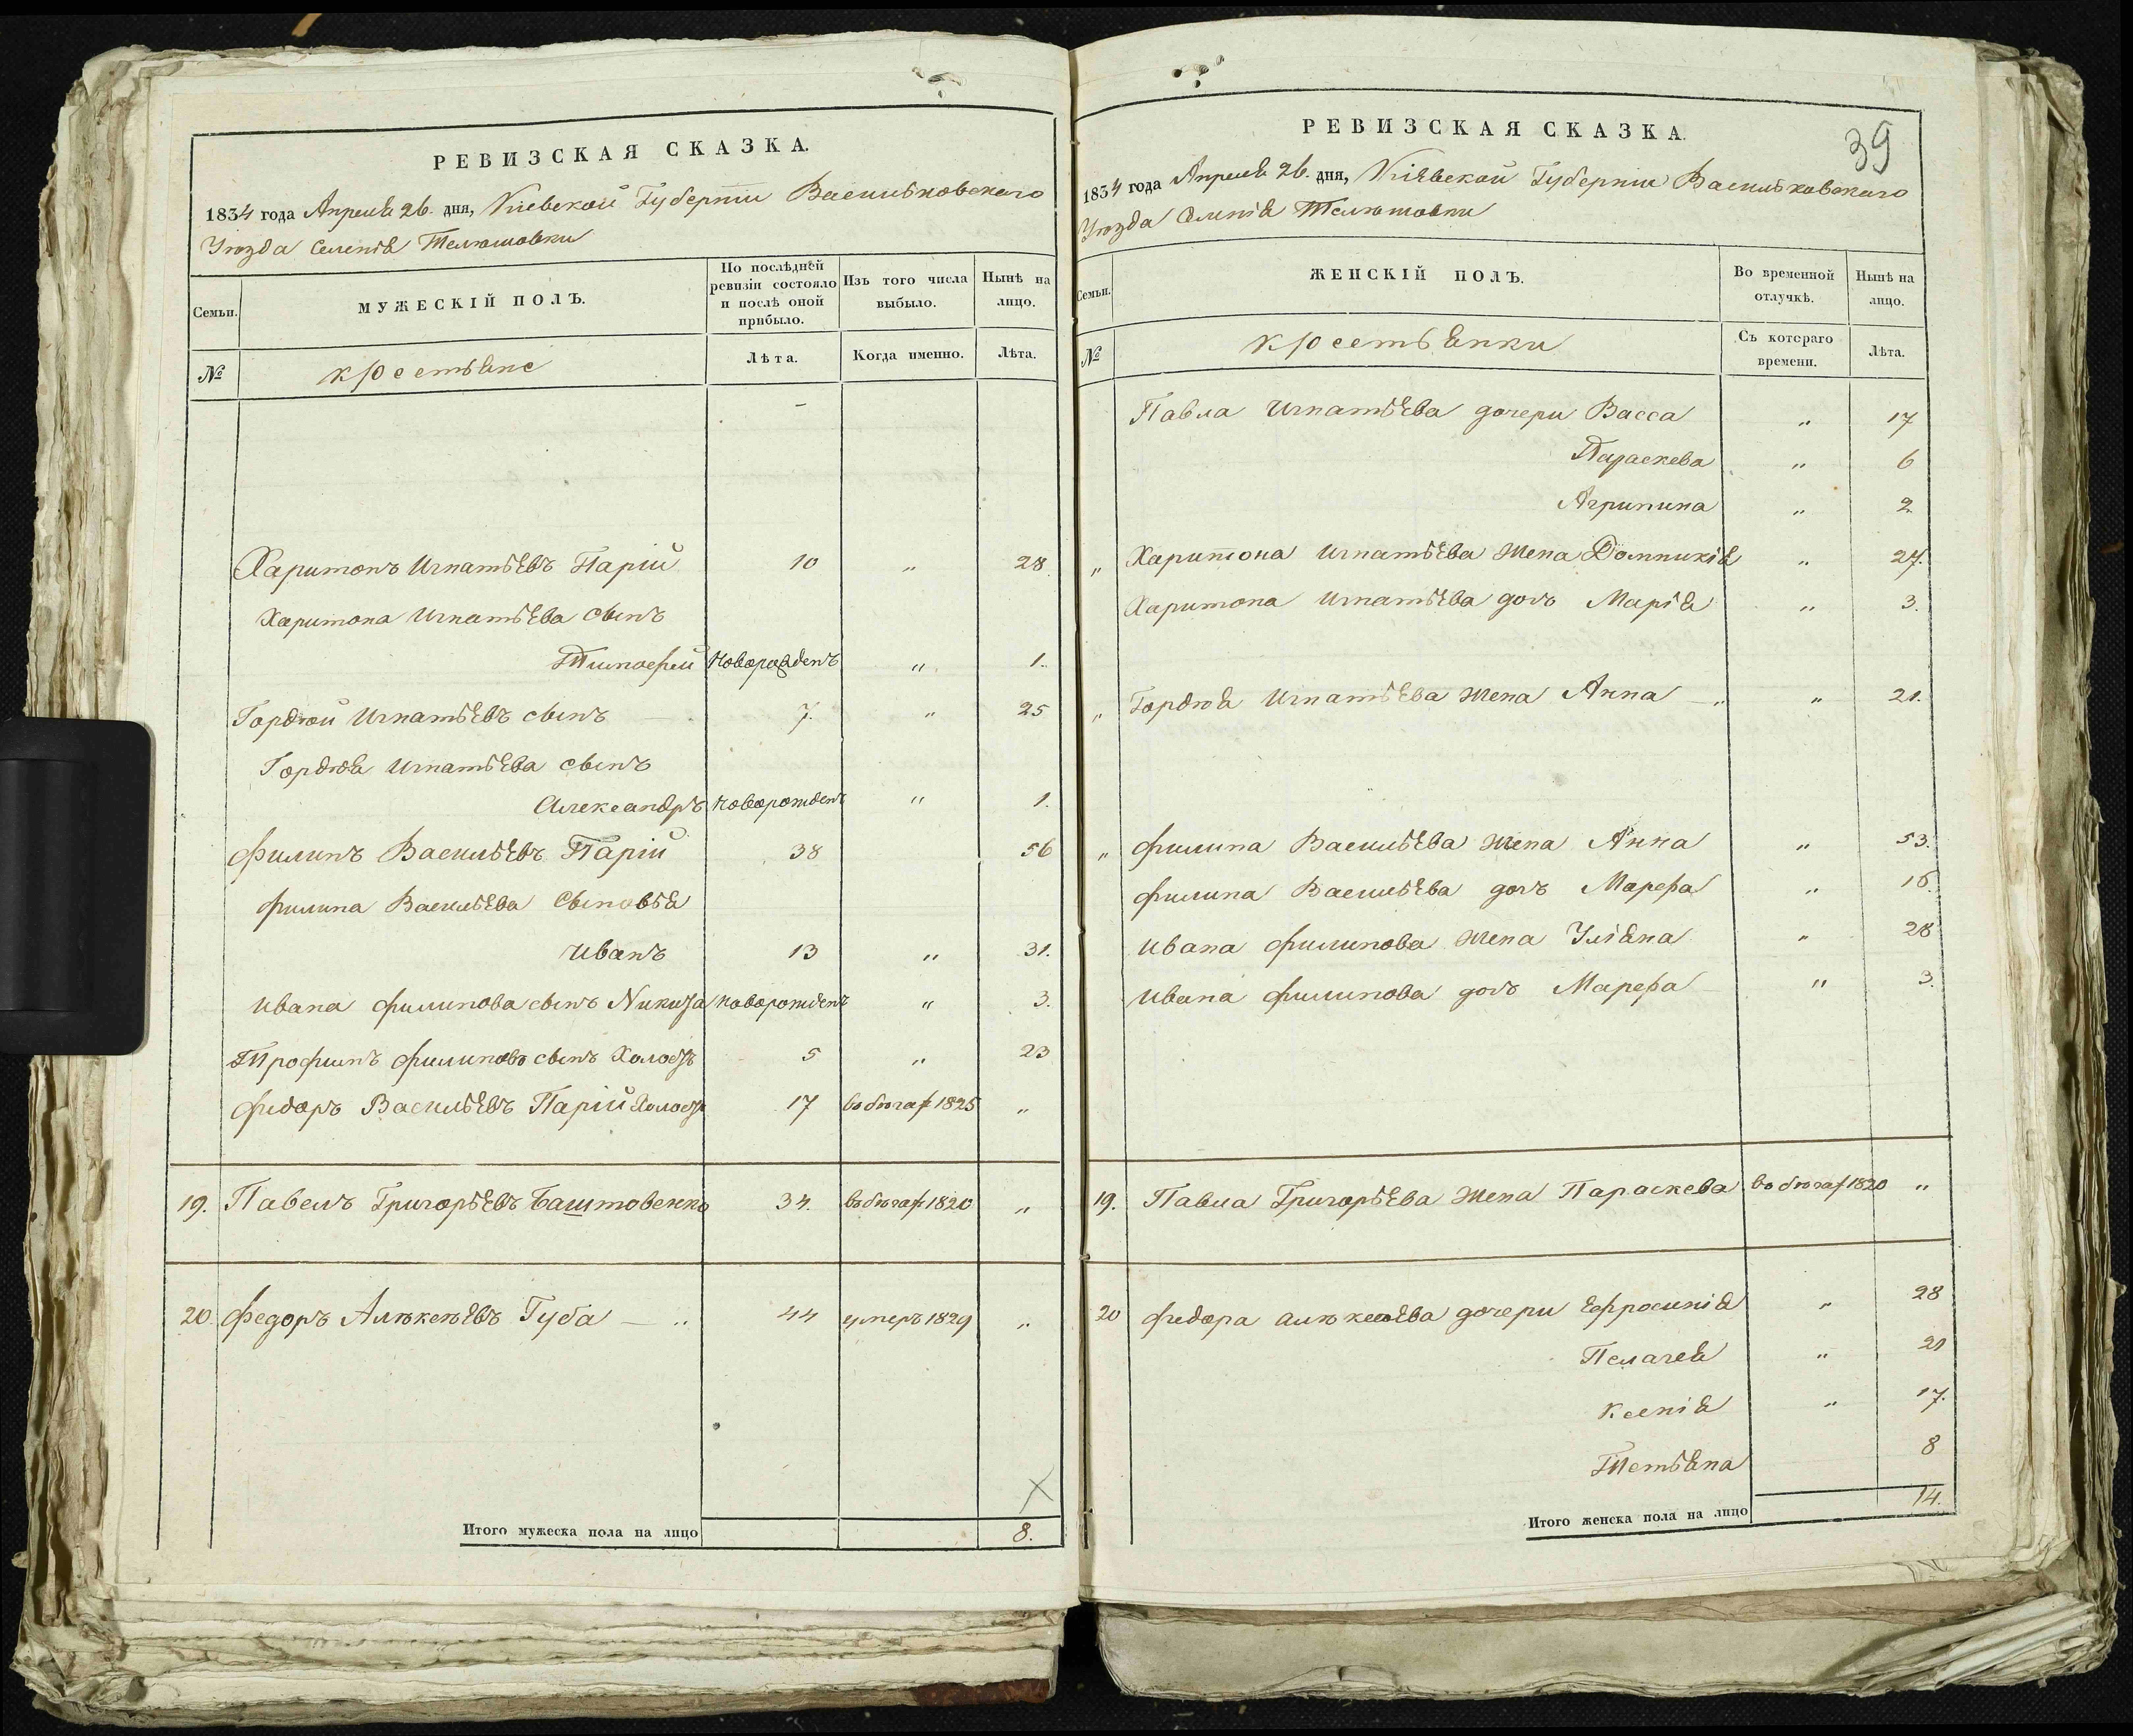 РЕВИЗСКАЯ СКАЗКА.
1834 года Апреля 26. дня, Киевской Губернiи Васильковскаго
Уѣзда Селенiя Телѣшовки
Семьи.
МУЖЕСКIЙ ПОЛЪ.
По послѣдней ревизiи состояло и послѣ оной прибыло.
Изъ того числа выбыло.
Нынѣ на лицо.
№
крестьяне
Лѣта.
Когда именно.
Лѣта.
Харитонъ Игнатьевъ Парiй 10 „ 28
Харитона Игнатьева сынъ
Тимофей новорожденъ „ 1.
Гордѣй Игнатьевъ сынъ — 7. „ 25
Гордѣя Игнатьева сынъ
Александръ новорожденъ „ 1.
Филипъ Васильевъ Парiй 38 56
Филипа Васильева Сыновья
Иванъ 13 „ 31.
Ивана Филипова сынъ Никита новорожденъ „ 3.
Трофимъ Филиповъ сынъ Холостъ 5 „ 23
Федоръ Васильевъ Парiй Холостъ 17 въ бѣгах 1825 „
19. Павелъ Григорьевъ Баштовенко 34. въ бѣгах 1820 „
20. Федоръ Алѣксѣевъ Губа — „ 44 умеръ 1829 „
Итого мужеска пола на лицо 8.
РЕВИЗСКАЯ СКАЗКА.
39
1834 года Апреля 26. дня, Кiевской Губернiи Васильковскаго
Уѣзда Селенiя Телѣшовки
Семьи.
ЖЕНСКIЙ ПОЛЪ.
Во временной отлучкѣ.
Нынѣ на лицо.
№
крестьянки
Съ котораго времени.
Лѣта.
Павла Игнатьева дочери Васса „ 17
Параскева „ 6
Агрипина „ 2
„ Харитона Игнатьева жена Домникiя „ 27.
Харитона Игнатьева дочь Марiя „ 3.
„ Гордѣя Игнатьева жена Анна — „ „ 21.
„ Филипа Васильева жена Анна „ 53.
Филипа Васильева дочь Марфа „ 16.
Ивана Филипова жена Улiяна „ 28
Ивана Филипова дочь Марфа „ 3.
19. Павла Григорьева жена Параскева въ бѣгах 1820 „
20 Федора Алѣксѣева дочери Ефросинiя „ 28
Пелагея „ 21
Ксенiя „ 17.
Тетьяна 8
Итого женска пола на лицо 14.